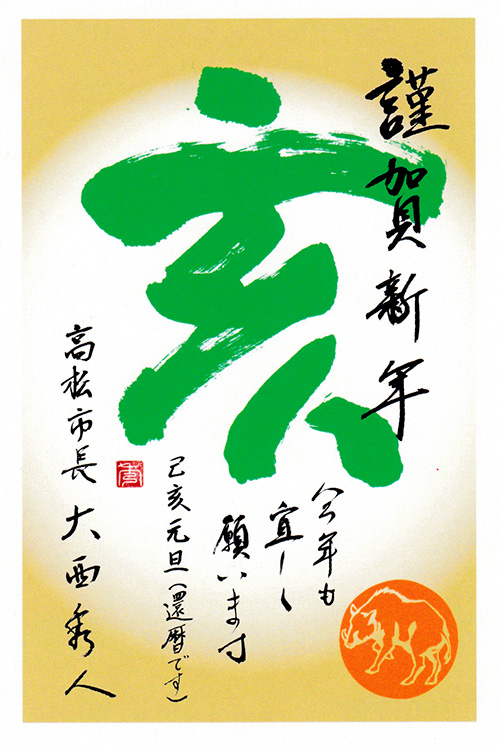 謹賀新年
亥
今年も
宜しく
願います
己亥元旦(還暦です)
高松市長 大西秀人